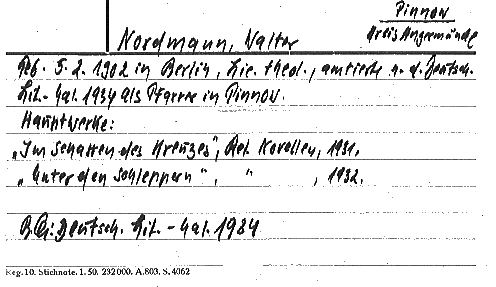 Pinnow
Kreis Angermünde
Nordmann, Walter
Geb. 5.2.1902 in Berlin, Lic. theol., amtierte n. d. Deutsch.
Lit.-Kal. 1934 als Pfarrer in Pinnow.
Hauptwerke:
„Im Schatten des Kreuzes", Rel. Novellen, 1931.
„Unter den Schleppern", " , 1932.
B. Q.: Deutsch. Lit.-Kal. 1934
Reg. 10. Stichnote. 1. 50. 232000. A.803. S. 4062